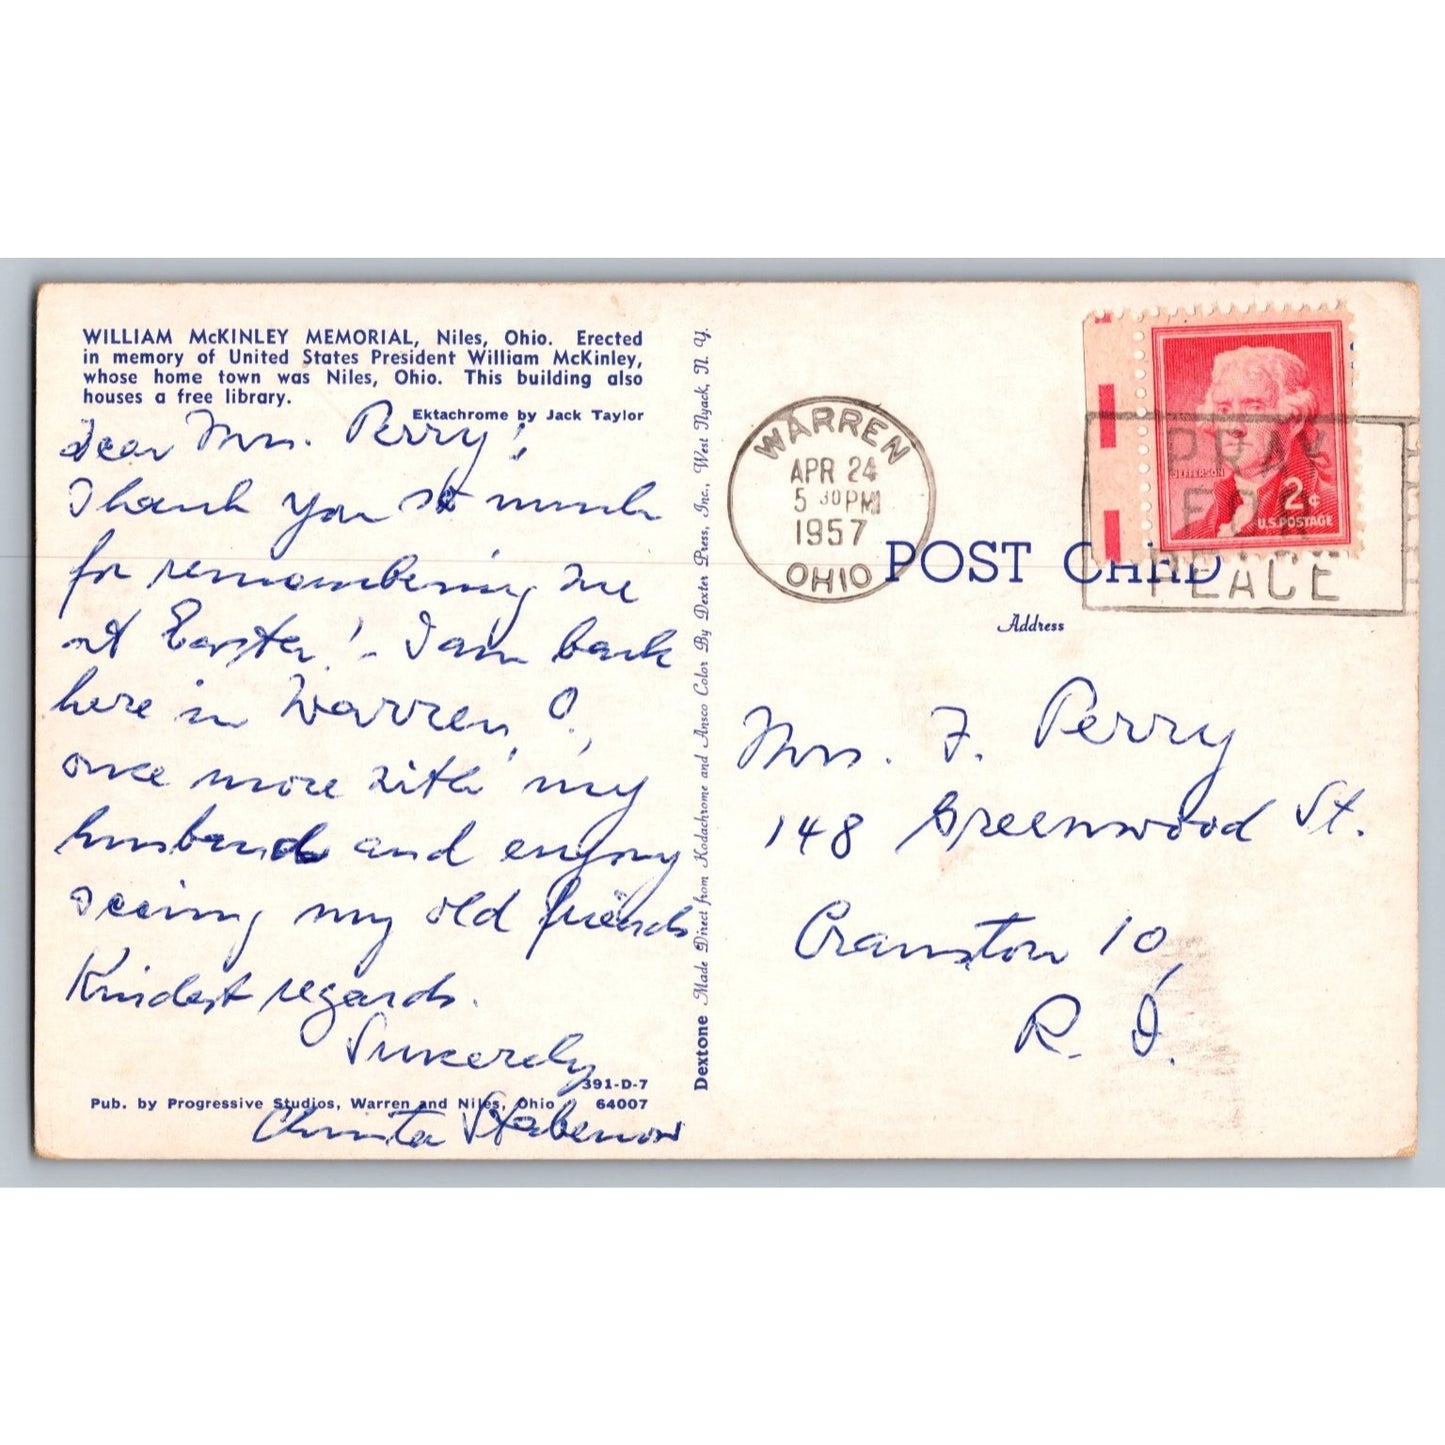 WILLIAM McKINLEY MEMORIAL, Niles, Ohio. Erected
in memory of United States President William McKinley,
whose home town was Niles, Ohio. This building also
houses a free library.
Ektachrome by Jack Taylor
Dear Mrs. Perry!
Thank you so much
for remembering me
at Easter! - I am back
here in Warren, O.,
once more with my
husband and enjoy
seeing my old friends
Kindest regards.
Sincerely
391-D-7
Pub. by Progressive Studios, Warren and Niles, Ohio 64007
Stabenow
Dextone Made Direct from Kodachrome and Ansco Color By Dexter Press, Inc., West Nyack, N. Y.
WARREN
APR 24
5 30 PM
1957
OHIO
PRAY
FOR
PEACE
JEFFERSON
2¢
U.S. POSTAGE
POST CARD
Address
Mrs. F. Perry
148 Greenwood St.
Cranston 10,
R. I.